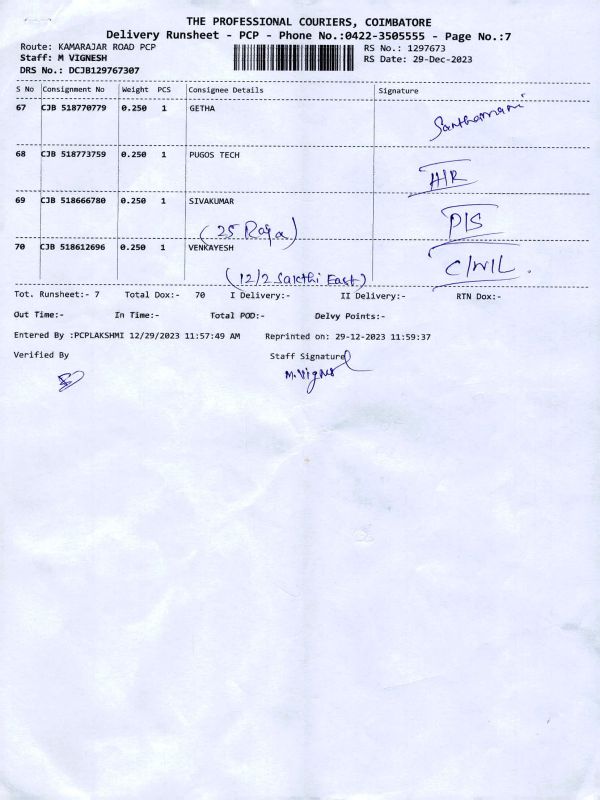 THE PROFESSIONAL COURIERS, COIMBATORE
Delivery Runsheet - PCP - Phone No.:0422-3505555 - Page No.:7
Route: KAMARAJAR ROAD PCP RS No.: 1297673
Staff: M VIGNESH RS Date: 29-Dec-2023
DRS No.: DCJB129767307
S No Consignment No Weight PCS Consignee Details Signature
67 CJB 518770779 0.250 1 GETHA Santhamani
68 CJB 518773759 0.250 1 PUGOS TECH H/R
69 CJB 518666780 0.250 1 SIVAKUMAR
(25 Raja) P/S
70 CJB 518612696 0.250 1 VENKAYESH C/W/L.
(12/2 Sakthi East)
Tot. Runsheet:- 7 Total Dox:- 70 I Delivery:- II Delivery:- RTN Dox:-
Out Time:- In Time:- Total POD:- Delvy Points:-
Entered By :PCPLAKSHMI 12/29/2023 11:57:49 AM Reprinted on: 29-12-2023 11:59:37
Verified By Staff Signature
M.Vignesh